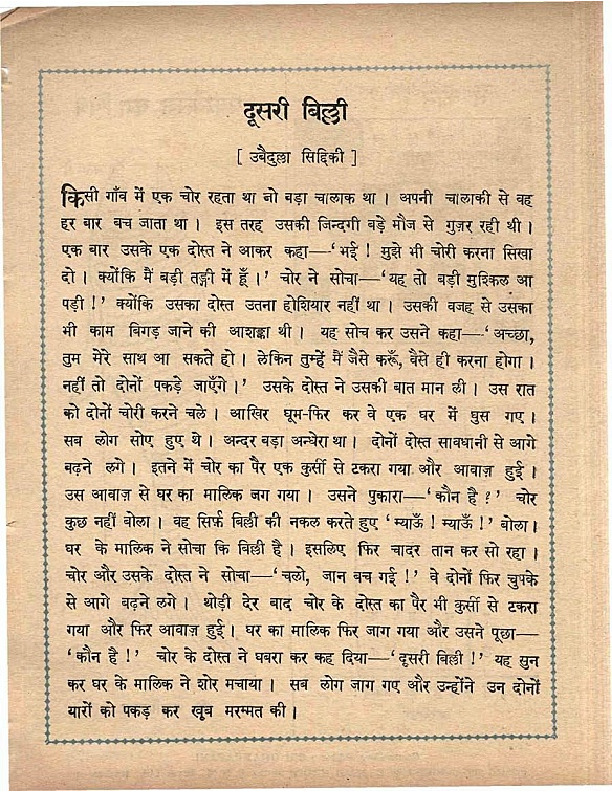 दूसरी बिल्ली
[ उबैदुल्ला सिद्दिकी ]
किसी गाँव में एक चोर रहता था जो बड़ा चालाक था । अपनी चालाकी से वह
हर बार बच जाता था । इस तरह उसकी जिन्दगी बड़े मौज से गुज़र रही थी ।
एक बार उसके एक दोस्त ने आकर कहा—‘भई ! मुझे भी चोरी करना सिखा
दो । क्योंकि मैं बड़ी तङ्गी में हूँ ।’ चोर ने सोचा—‘यह तो बड़ी मुश्किल आ
पड़ी !’ क्योंकि उसका दोस्त उतना होशियार नहीं था । उसकी वजह से उसका
भी काम बिगड़ जाने की आशङ्का थी । यह सोच कर उसने कहा—‘अच्छा,
तुम मेरे साथ आ सकते हो । लेकिन तुम्हें मैं जैसे करूँ, वैसे ही करना होगा ।
नहीं तो दोनों पकड़े जाएँगे ।’ उसके दोस्त ने उसकी बात मान ली । उस रात
को दोनों चोरी करने चले । आखिर घूम-फिर कर वे एक घर में घुस गए ।
सब लोग सोए हुए थे । अन्दर बड़ा अन्धेरा था । दोनों दोस्त सावधानी से आगे
बढ़ने लगे । इतने में चोर का पैर एक कुर्सी से टकरा गया और आवाज़ हुई ।
उस आवाज़ से घर का मालिक जग गया । उसने पुकारा—‘कौन है ?’ चोर
कुछ नहीं बोला । वह सिर्फ़ बिल्ली की नकल करते हुए ‘म्याऊँ ! म्याऊँ !’ बोला ।
घर के मालिक ने सोचा कि बिल्ली है । इसलिए फिर चादर तान कर सो रहा ।
चोर और उसके दोस्त ने सोचा—‘चलो, जान बच गई !’ वे दोनों फिर चुपके
से आगे बढ़ने लगे । थोड़ी देर बाद चोर के दोस्त का पैर भी कुर्सी से टकरा
गया और फिर आवाज़ हुई । घर का मालिक फिर जाग गया और उसने पूछा—
‘कौन है !’ चोर के दोस्त ने घबरा कर कह दिया—‘दूसरी बिल्ली !’ यह सुन
कर घर के मालिक ने शोर मचाया । सब लोग जाग गए और उन्होंने उन दोनों
यारों को पकड़ कर खूब मरम्मत की ।